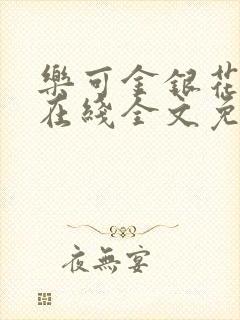 樂可金銀花
在綫全文免
夜無宴